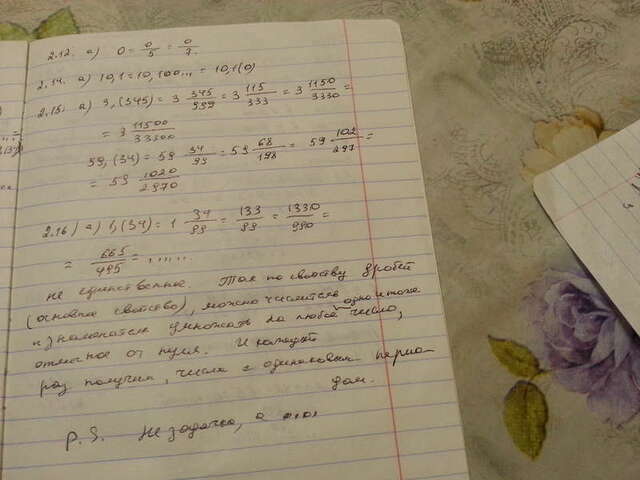 2.12. а) 0 = 0/5 = 0/7.
2.14. а) 10,1 = 10,100... = 10,1(0)
2.15. а) 3,(345) = 3 345/999 = 3 115/333 = 3 1150/3330 =
= 3 11500/33300
59,(34) = 59 34/99 = 59 68/198 = 59 102/297 =
= 59 1020/2970
2.16) а) 1,(34) = 1 34/99 = 133/99 = 1330/990 =
= 665/495 = ......
не единственное. Так по свойству дробей
(основное свойство), можно числитель
и знаменатель умножать на любое одно и тоже число,
отличное от нуля. И каждый
раз получим, числа с одинаковым перио-
дом.
P.S. Не задача, а